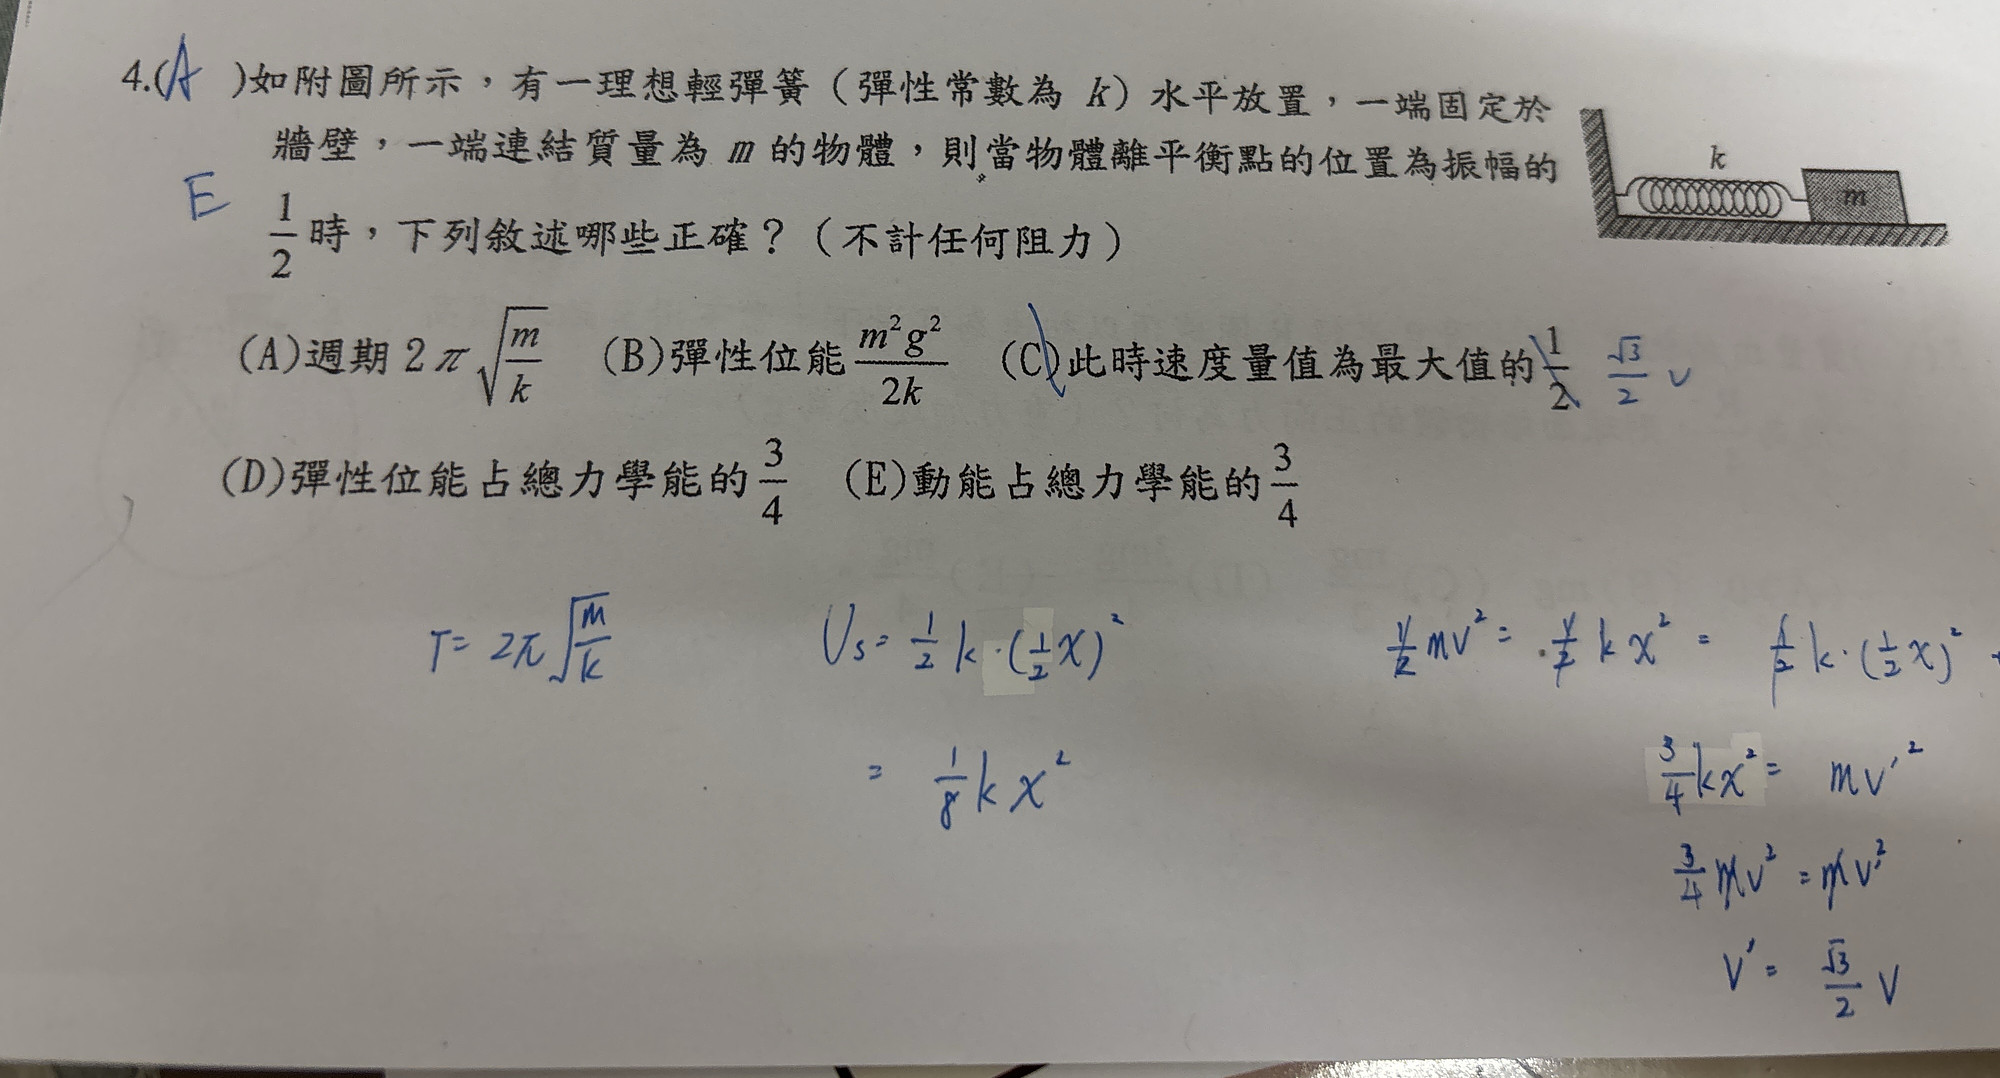 4.(A )如附圖所示，有一理想輕彈簧（彈性常數為 k）水平放置，一端固定於
牆壁，一端連結質量為 m 的物體，則當物體離平衡點的位置為振幅的
E
1/2 時，下列敘述哪些正確？（不計任何阻力）
k
m
(A)週期 2π√(m/k) (B)彈性位能 m²g²/2k (C)此時速度量值為最大值的 1/2 √3/2 v
(D)彈性位能占總力學能的 3/4 (E)動能占總力學能的 3/4
T= 2π√(m/k) Us= 1/2 k·(1/2 x)² 1/2 mv² = 1/2 k x² = 1/2 k·(1/2 x)² +
= 1/8 k x²
3/4 kx² = mv'²
3/4 mv² = mv'²
v' = √3/2 v